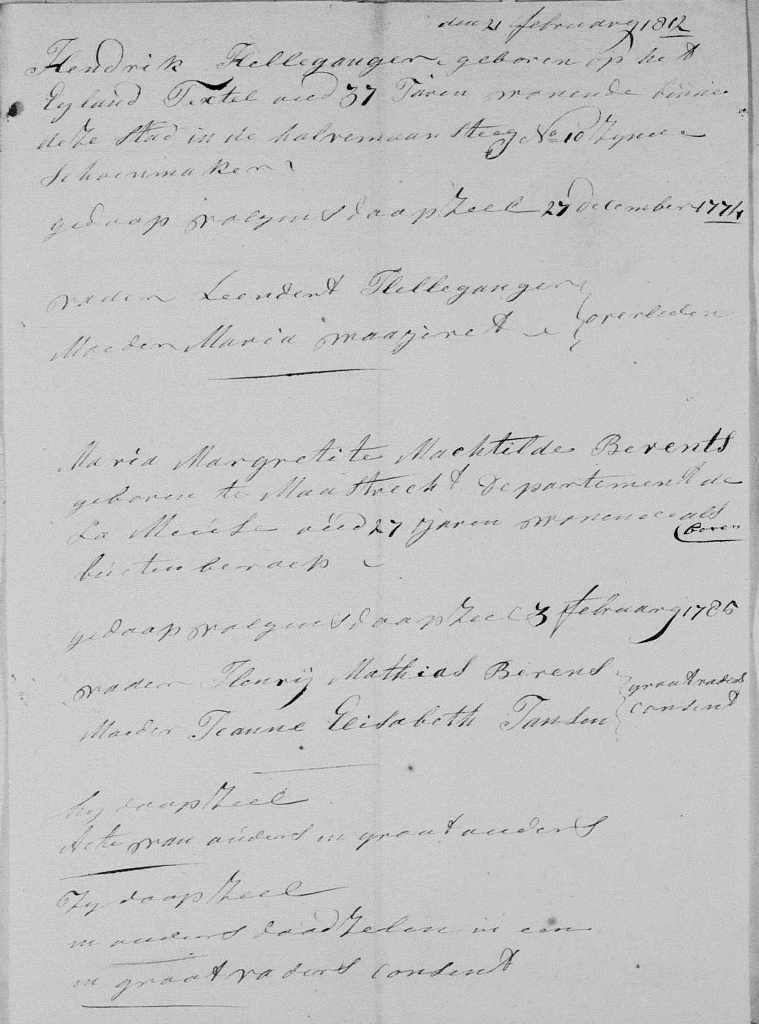 den 21 februarij 1812
Hendrik Helleganger geboren op het
Eyland Textel oud 37 Jaren wonende binne
deze stad in de halvemaan steeg No 10 zynde
Schoenmaker
gedoop volgens doopzeel 27 december 1774
vader Leendert Helleganger
Moeder Maria waagieret
overleden
Maria Margretite Machtilde Berents
geboren te Maastrecht departement de
La Meuse oud 27 jaren wonende als
boven
buiten beroep
gedoop volgens doopzeel 3 februarij 1785
vader Henrij Mathias Berens
Moeder Jeanne Elisabeth Jansen
grootvaders
consent
hy doopzeel
Acte van ouders en grootouders
Zy doopzeel
en ouders doodzelen in een
en grootvaders consent